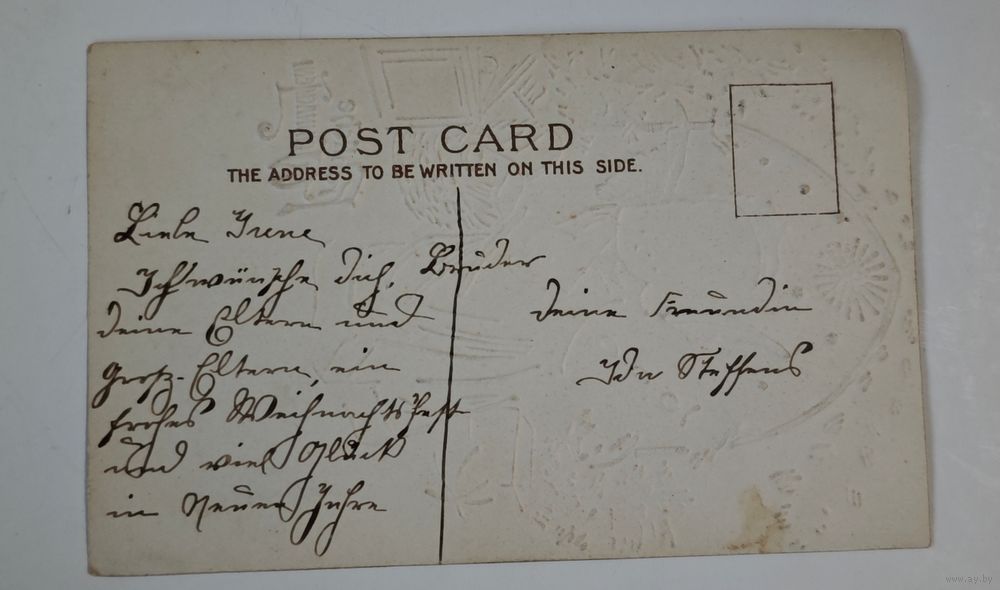 POST CARD
THE ADDRESS TO BE WRITTEN ON THIS SIDE.
Liebe Irene
Ich wünsche dich, Bruder
deine Eltern und
Groß-Eltern, ein
frohes Weihnachtsfest
und viel Glück
in Neuen Jahre
deine Freundin
Ida Steffens
www.ay.by